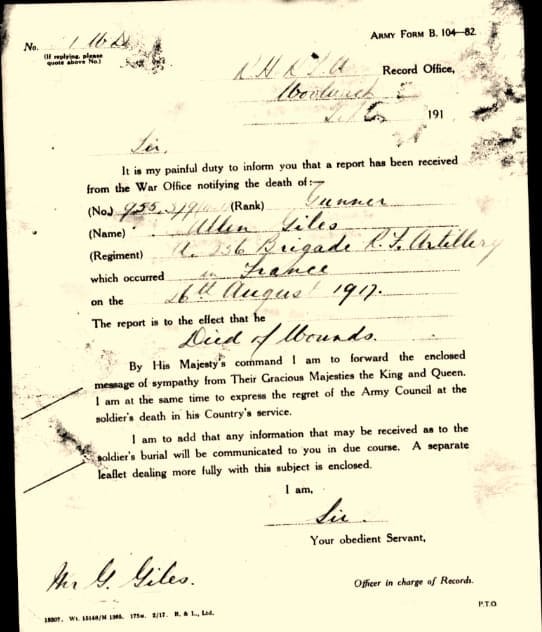 ARMY FORM B. 104—82.
No.
(If replying, please
quote above No.)
Record Office,
Woolwich
191
Sir,
It is my painful duty to inform you that a report has been received
from the War Office notifying the death of:—
(No.) 955 (Rank) Gunner
(Name) Allen Giles
(Regiment) A. 256 Brigade R. F. Artillery
which occurred in France
on the 26th August 1917.
The report is to the effect that he
Died of Wounds.
By His Majesty's command I am to forward the enclosed
message of sympathy from Their Gracious Majesties the King and Queen.
I am at the same time to express the regret of the Army Council at the
soldier's death in his Country's service.
I am to add that any information that may be received as to the
soldier's burial will be communicated to you in due course. A separate
leaflet dealing more fully with this subject is enclosed.
I am,
Sir.
Your obedient Servant,
Mr G. Giles.
Officer in charge of Records.
P.T.O
175m. 2/17. R. & L., Ltd.